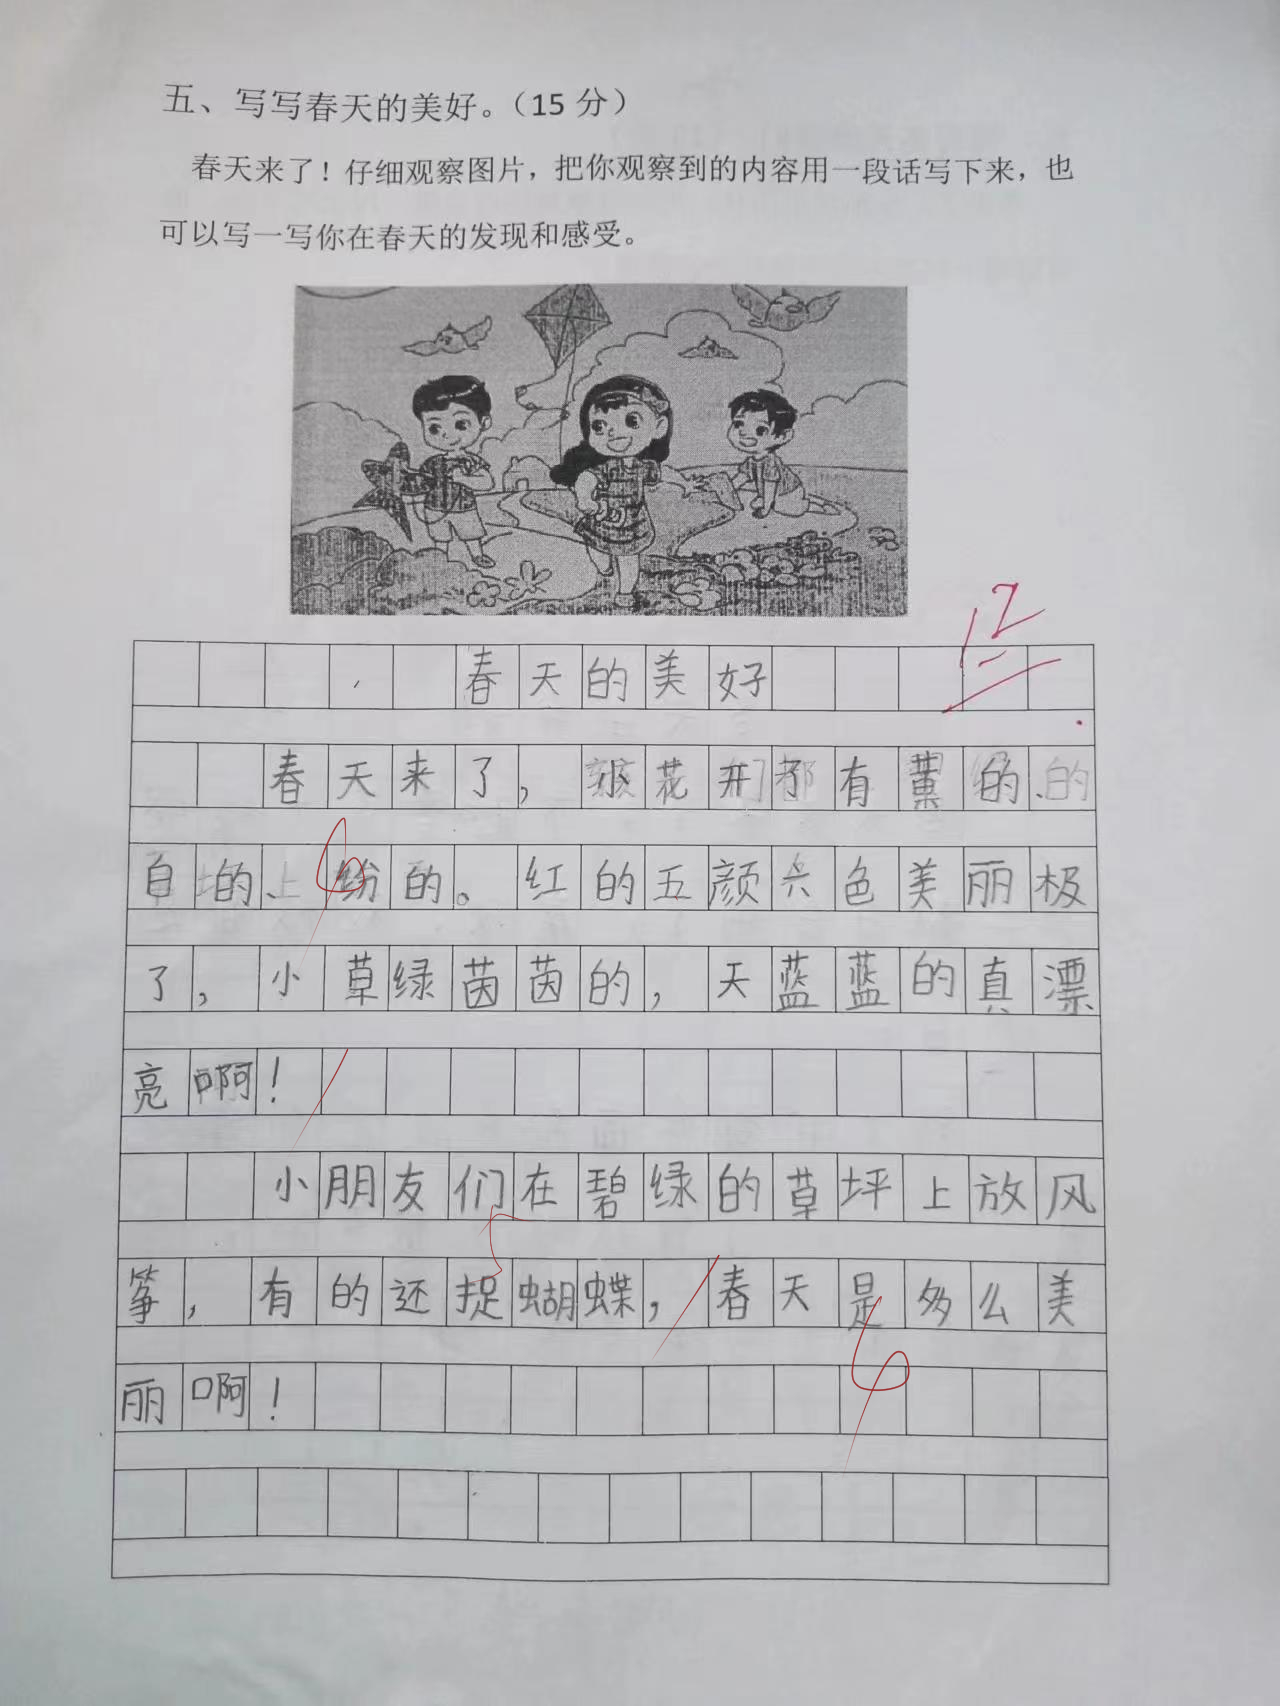 五、写写春天的美好。（15分）
春天来了！仔细观察图片，把你观察到的内容用一段话写下来，也
可以写一写你在春天的发现和感受。
12
春天的美好
春天来了，花开了有黄的、的
白的、粉的。红的五颜六色美丽极
了，小草绿茵茵的，天蓝蓝的真漂
亮啊！
小朋友们在碧绿的草坪上放风
筝，有的还捉蝴蝶，春天是多么美
丽啊！